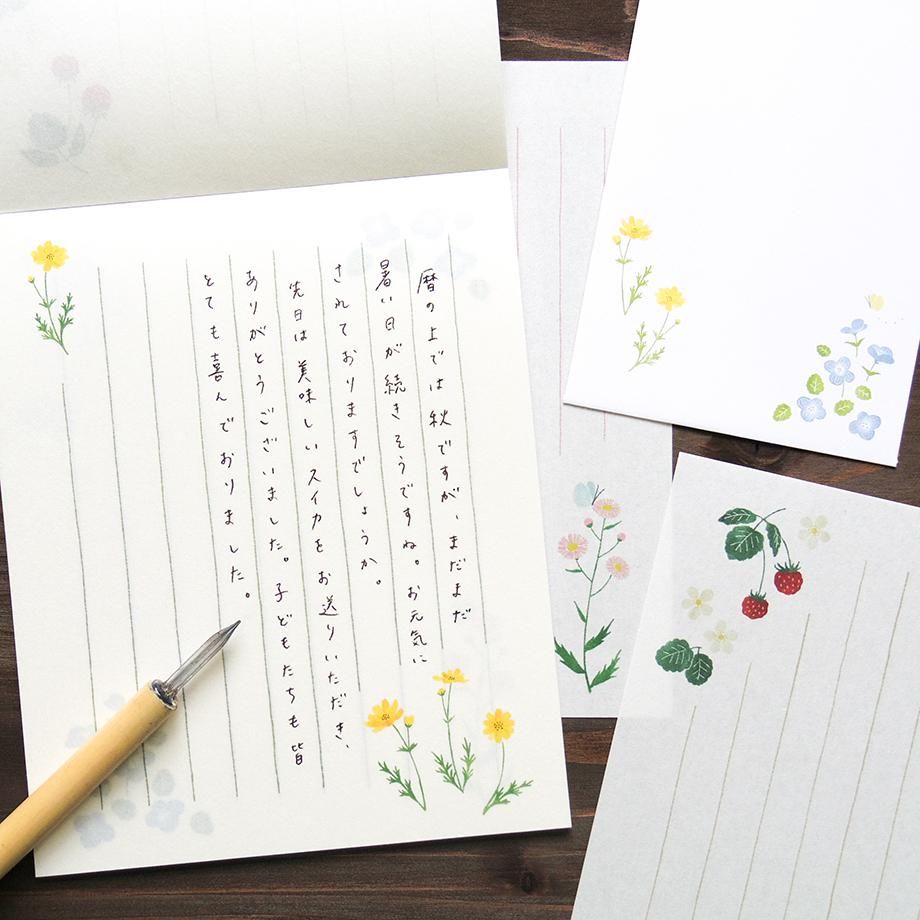 暦の上では秋ですが、まだまだ
暑い日が続きそうですね。お元気に
されておりますでしょうか。
先日は美味しいスイカをお送りいただき、
ありがとうございました。子どもたちも皆
とても喜んでおりました。